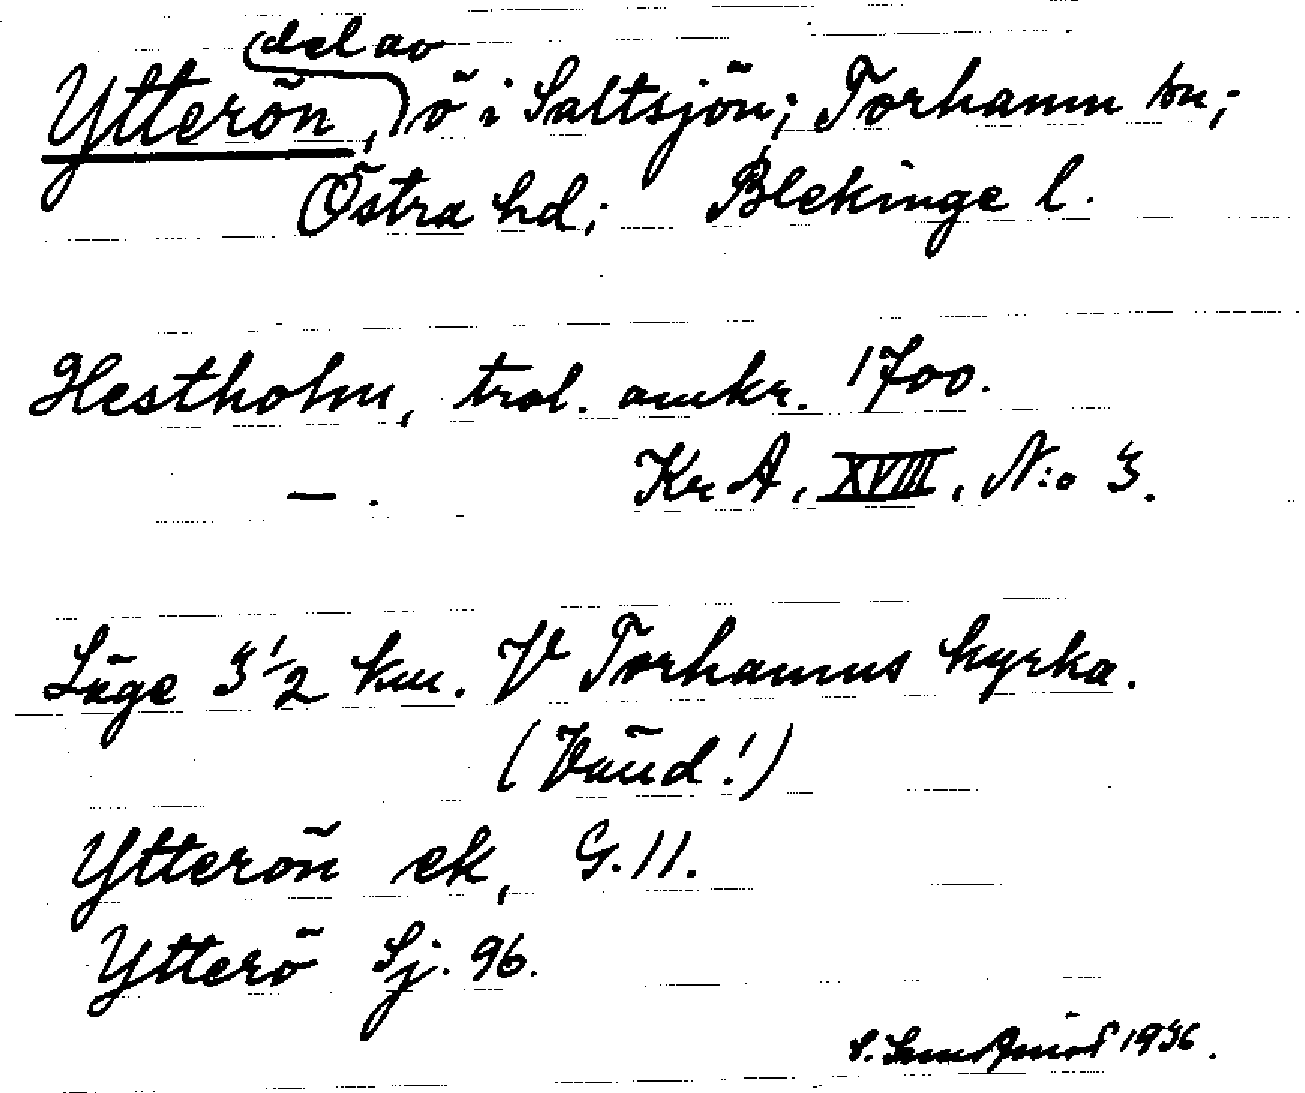 del av
Ytterön, ö i Saltsjön; Torhamn sn;
Östra hd; Blekinge l.
Hestholm, trol. omkr. 1700.
— . KrA, XVIII, N:o 3.
Läge 3 1/2 km. V Torhamns kyrka.
(Vänd!)
Ytterön ek, G. 11.
Ytterö Sj. 96.
1936.